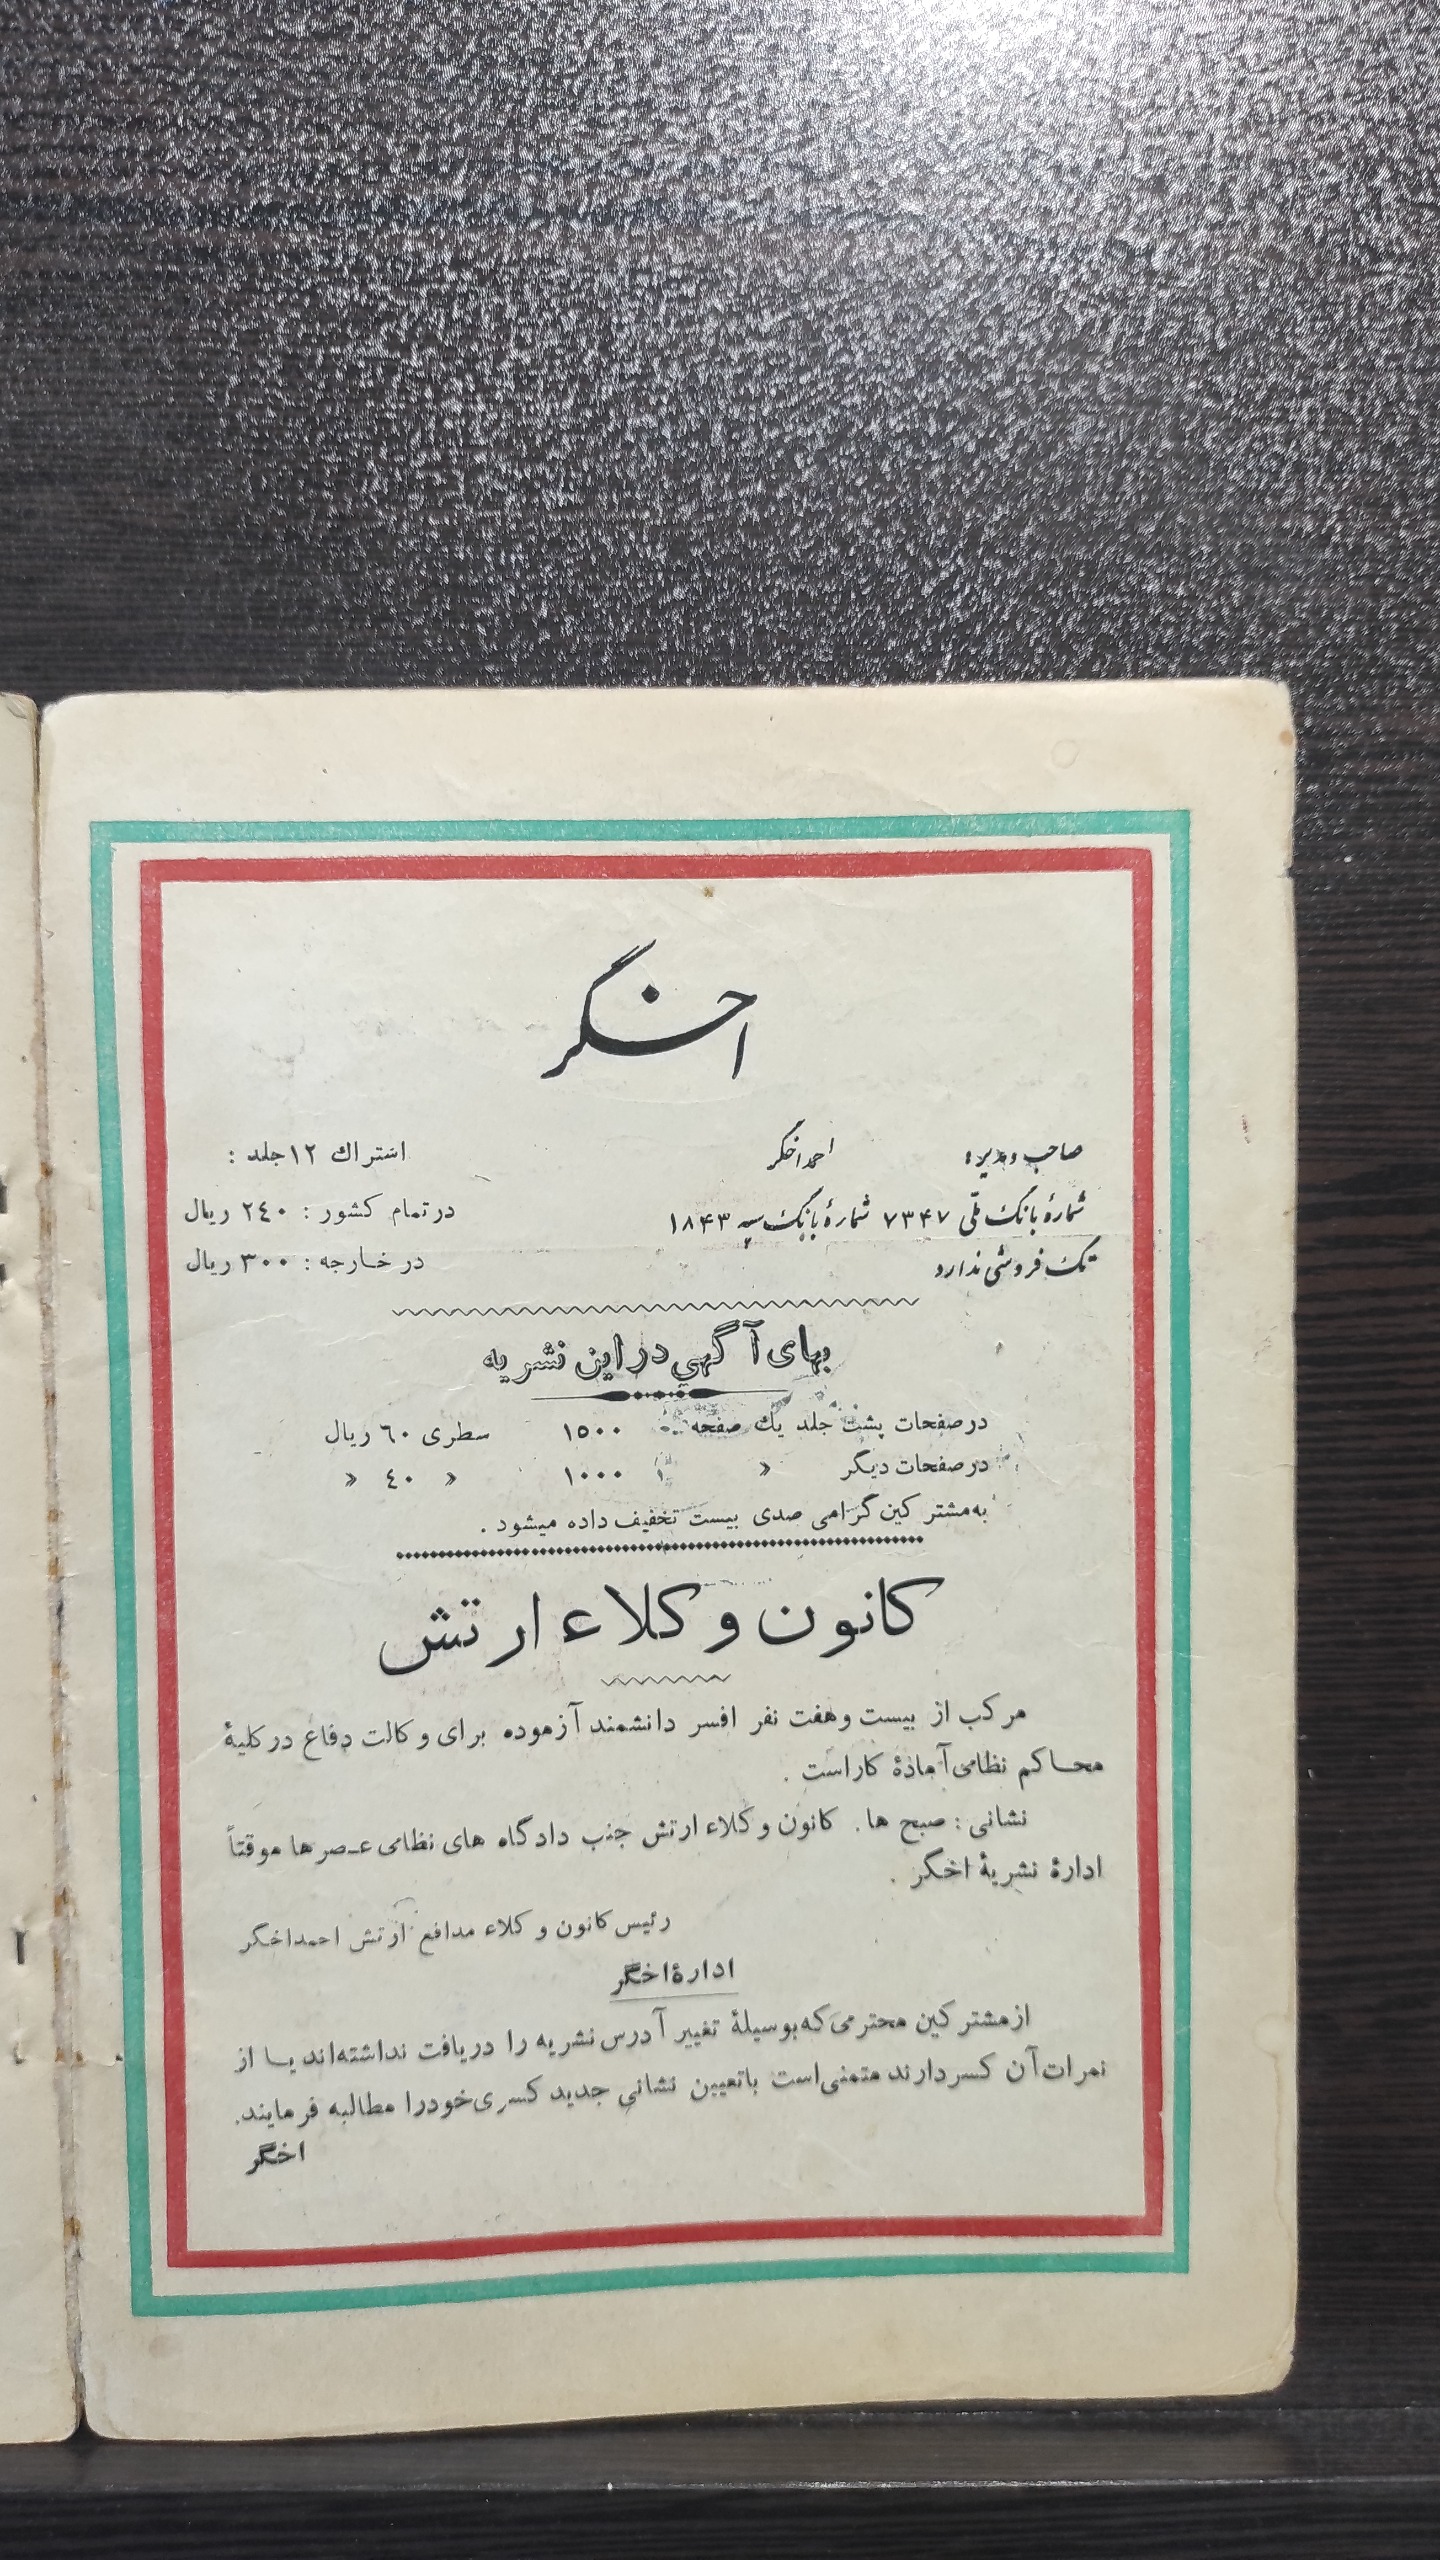 اخگر
صاحب و مدیره احمد اخگر
شمارهٔ بانک ملّی ۷۳۴۷ شمارهٔ بانک سپه ۱۸۴۳
تک فروشی ندارد
اشتراك ۱۲ جلد :
در تمام کشور : ۲٤۰ ریال
در خارجه : ۳۰۰ ریال
بهای آگهی در این نشریه
در صفحات پشت جلد یك صفحه ۱۵۰۰ سطری ٦۰ ریال
در صفحات دیگر » ۱۰۰۰ » ٤۰ »
به مشتر کین گرامی صدی بیست تخفیف داده میشود .
کانون و کلاء ارتش
مرکب از بیست و هفت نفر افسر دانشمند آزموده برای و کالت دفاع در کلیهٔ
محاکم نظامی آمادهٔ کار است .
نشانی : صبح ها . کانون و کلاء ارتش جنب دادگاه های نظامی عصر ها موقتاً
ادارهٔ نشریهٔ اخگر .
رئیس کانون و کلاء مدافع ارتش احمد اخگر
ادارهٔ اخگر
از مشتر کین محترمی که بوسیلهٔ تغییر آدرس نشریه را دریافت نداشته‌اند یا از
نمرات آن کسر دارند متمنی است با تعیین نشانی جدید کسری خود را مطالبه فرمایند.
اخگر